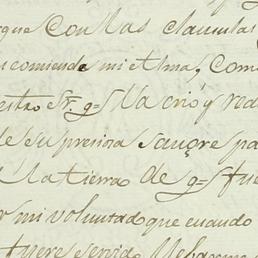 que con las clausulas
encomiendo mi Alma, Com
estro Sr. q=e la crio y red
de su presiosa sangre pa
la tierra de q=e fue
mi voluntad que cuando
fuere servido llebarme